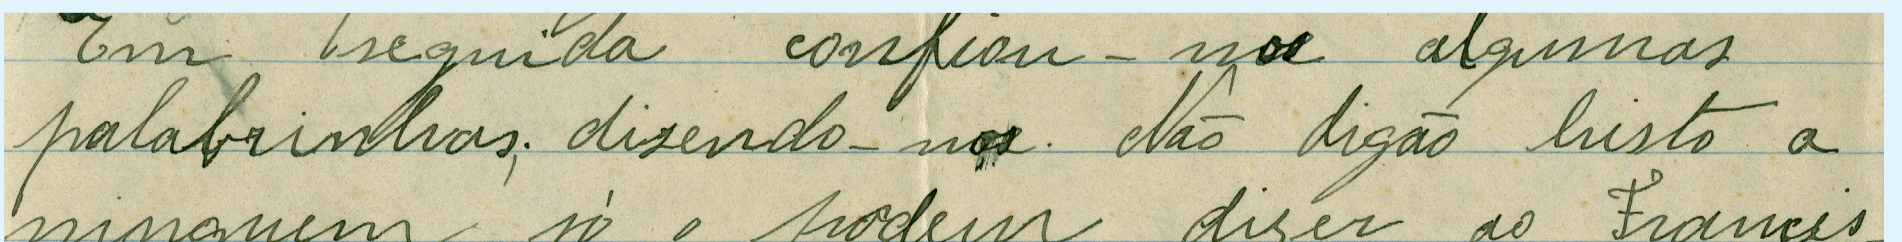 Em seguida confiou-nos algumas
palabrinhas; disendo-nos. Não digão histo a
ninguem só o pódem diser ao Francis-